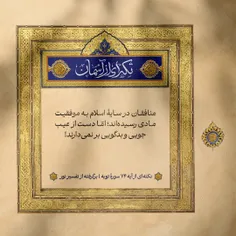 تکبیری از آسمان
منافقان در سایهٔ اسلام به موفقیت
مادی رسیده‌اند؛ امّا دست از عیب
جویی و بدگویی بر نمی‌دارند!
نکته‌ای از آیه ۷۴ سورهٔ توبه | برگرفته از تفسیر نور